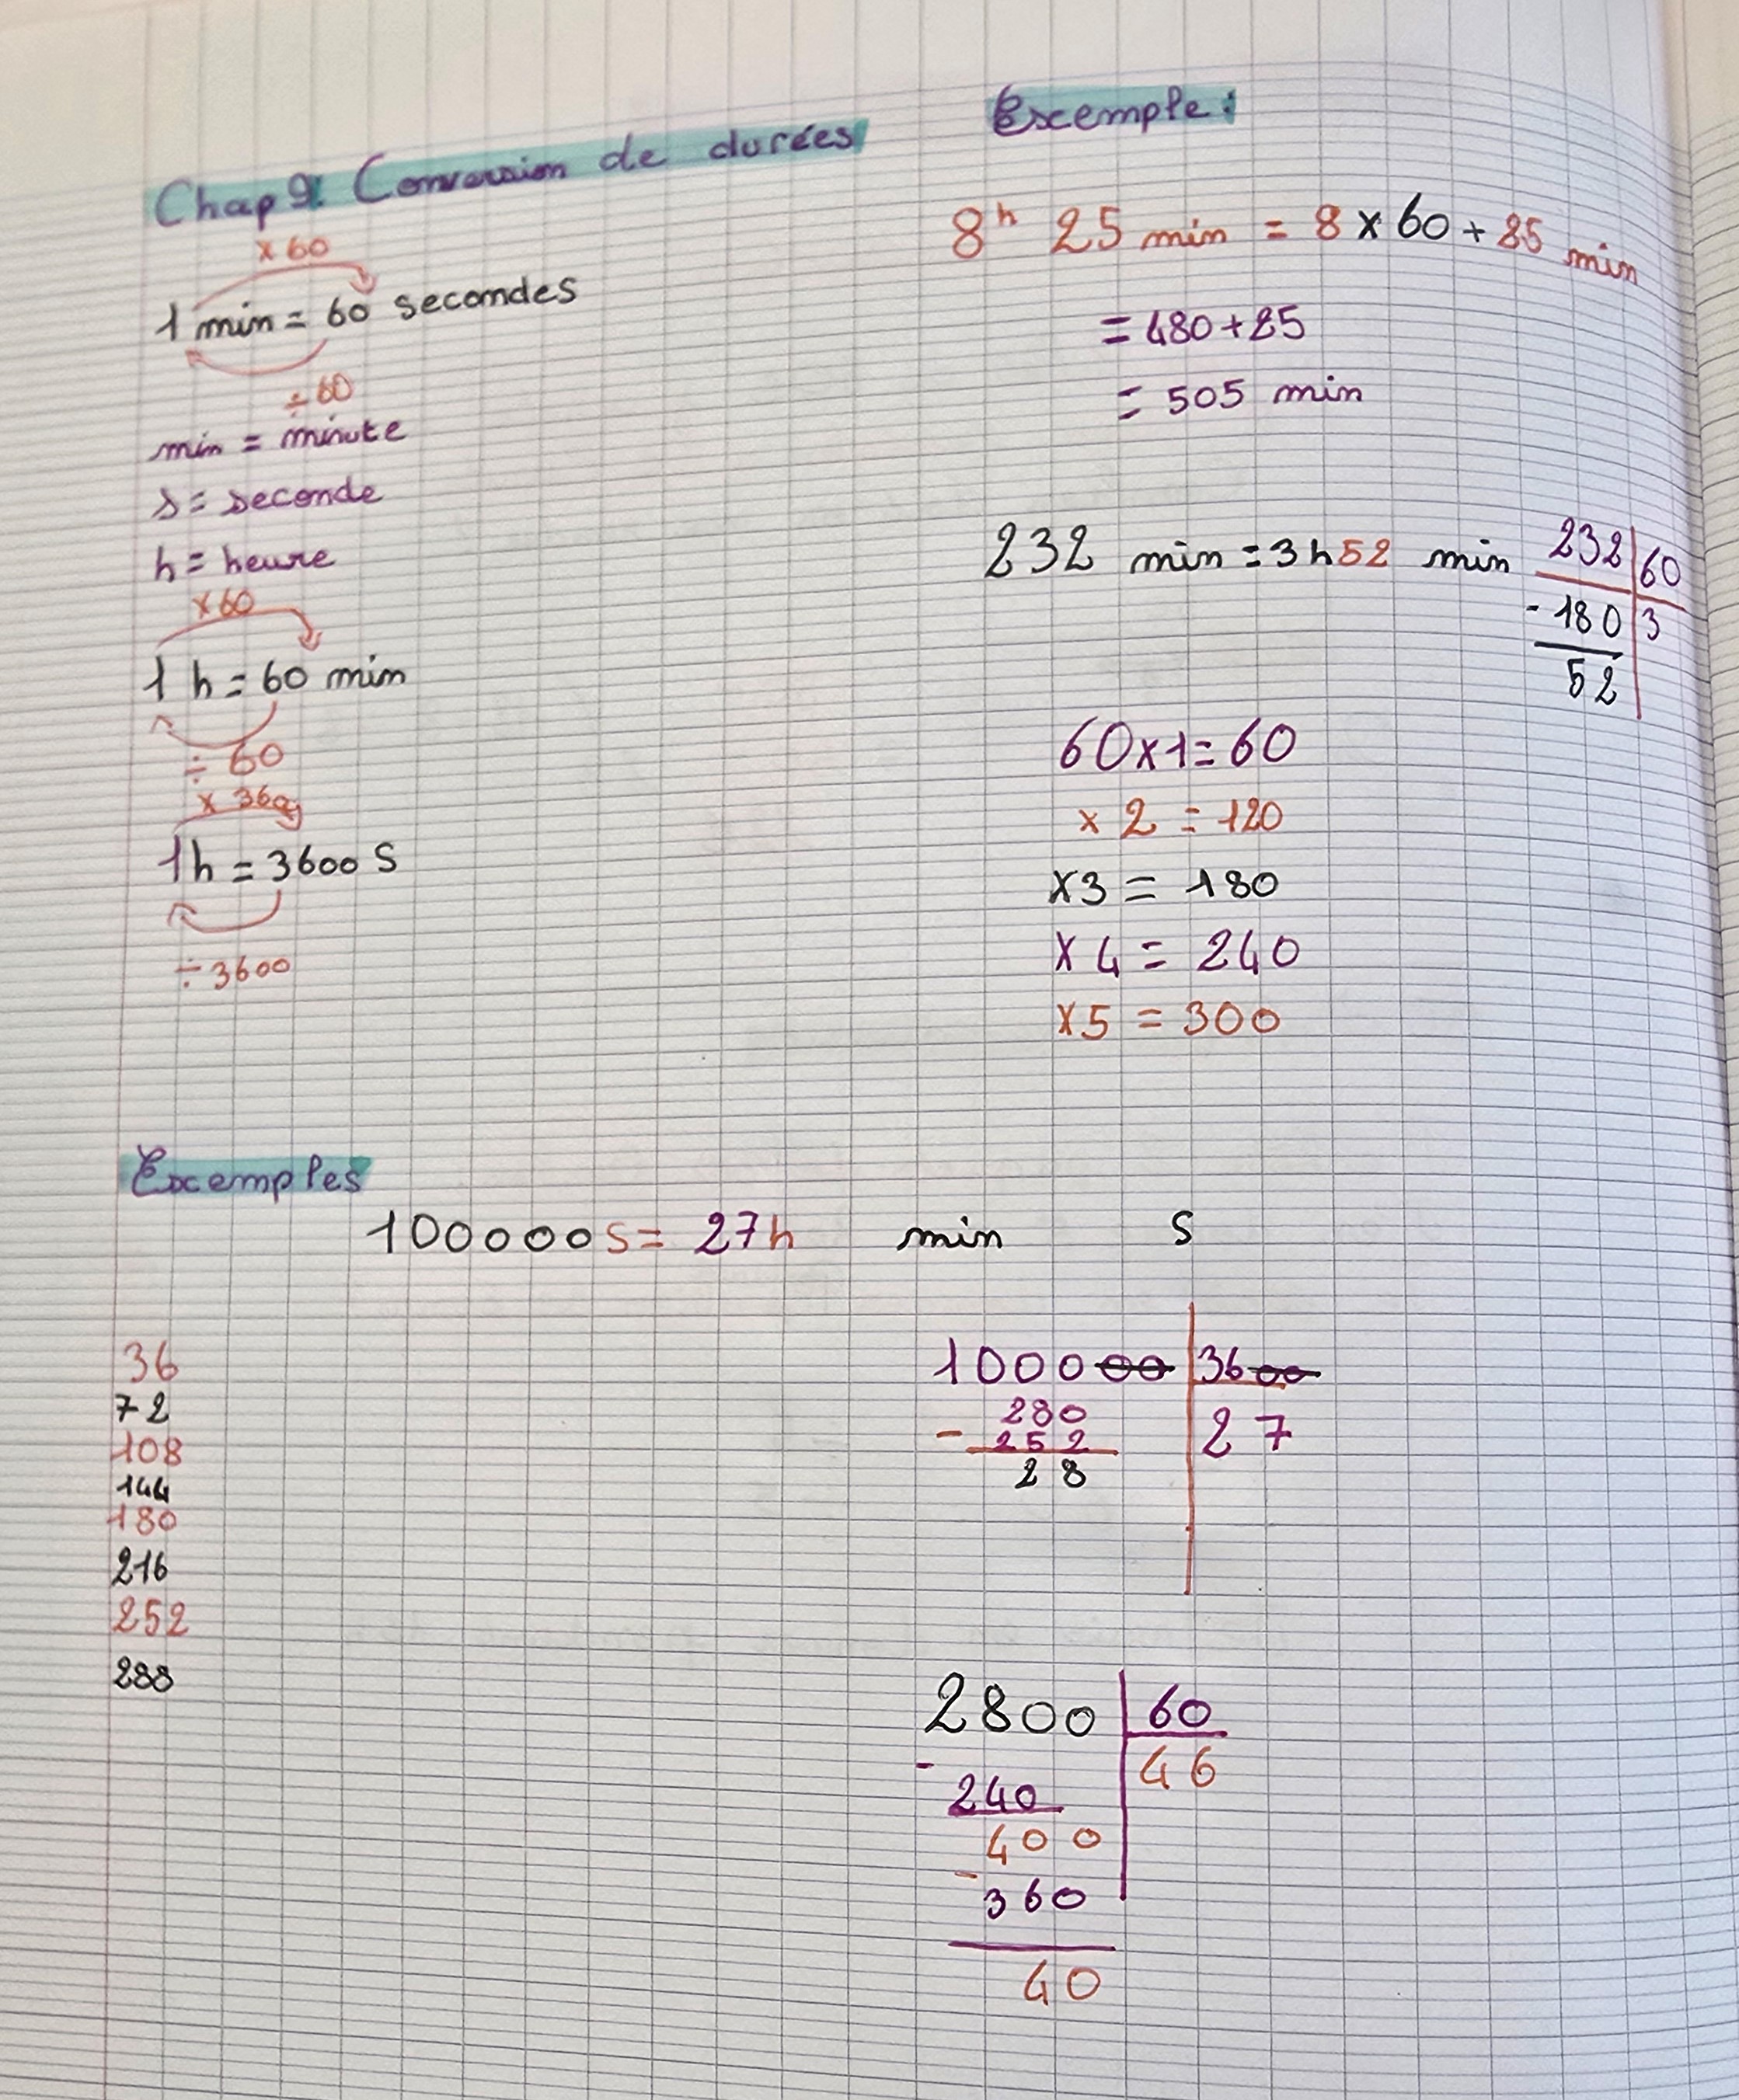 Chap 9: Conversion de durées
x 60
1 min = 60 secondes
÷ 60
min = minute
s = seconde
h = heure
x 60
1 h = 60 min
÷ 60
x 3600
1h = 3600 S
÷ 3600
Excemple:
8h 25 min = 8 x 60 + 25 min
= 480 + 25
= 505 min
232 min = 3h52 min
232 60
- 180 3
52
60 x 1 = 60
x 2 = 120
x 3 = 180
x 4 = 240
x 5 = 300
Excemples
100000 S = 27h min S
36
72
108
144
180
216
252
288
100000 3600
280 27
- 252
28
2800 60
- 46
240
400
-
360
40